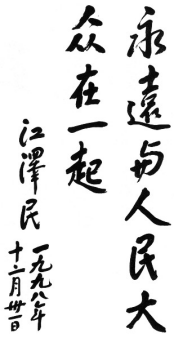 永遠与人民大
众在一起
江澤民
一九九八年
十二月卅一日